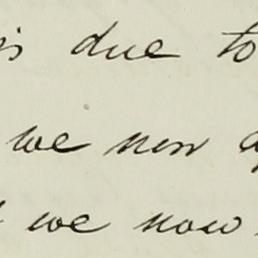 is due to
we now
we now